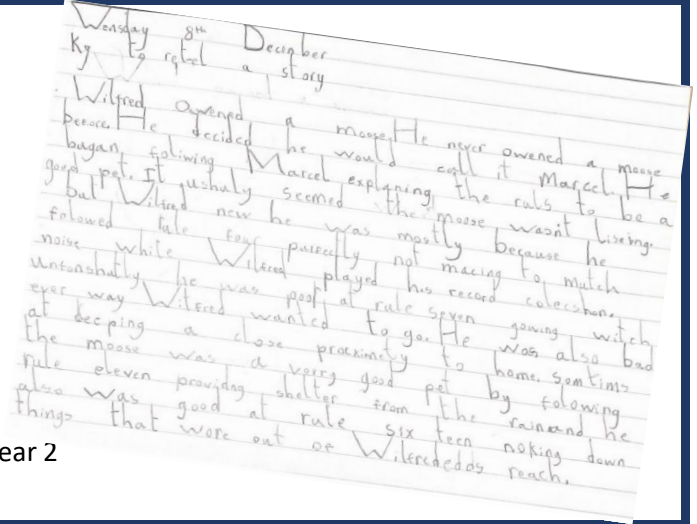 Wensday 8th December
Kq to retel a story
Wilfred Owened a moose. He never owened a moose
before. He decided he would call it Marcel. He
bagan foliwing Marcel explaning the ruls to be a
good pet. It ushuly seemed the moose wasn't liseing.
but Wilfred new he was mostly because he
folowed rule four purfectly not macing to mutch
noise while Wilfred played his record colecshon.
Unfonshutly he was poor at rule seven gowing witch
ever way Wilfred wanted to go. He was also bad
at keeping a close procximety to home. Somtims
the moose was a verry good pet by folowing
rule eleven providing shelter from the rain and he
also was good at rule six teen noking down
things that wore out of Wilfrededds reach.
ear 2